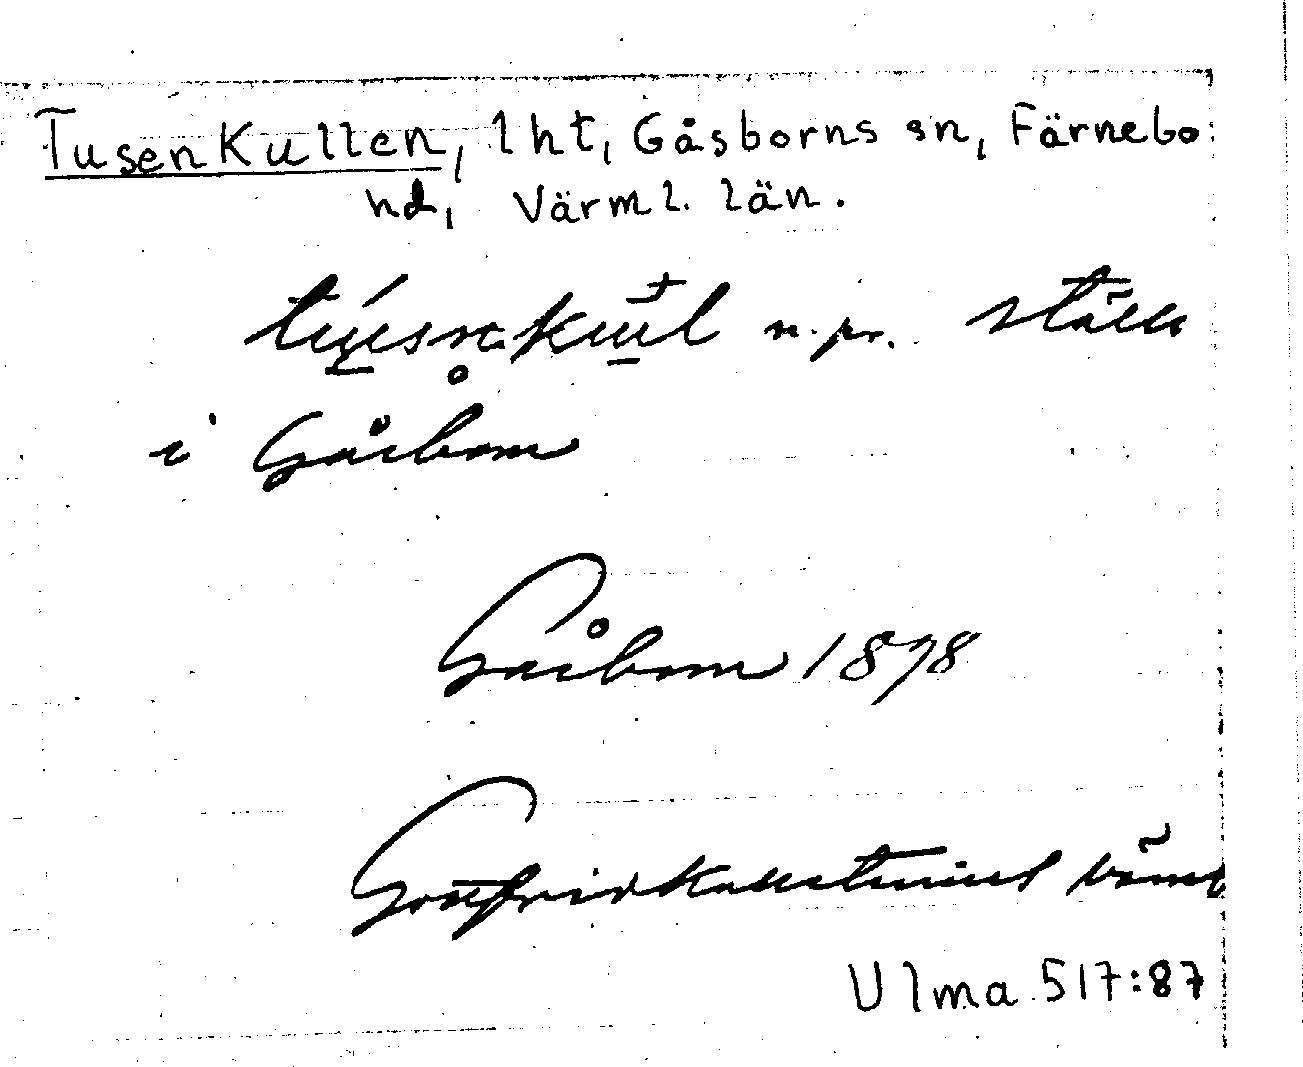 TusenKullen, lht, Gåsborns sn, Färnebo
hd, Värml. län.
n. pr. ställe
i Gåsborn
Gåsborn 1898
Gottfrid Kallstenius
Ulma 517:87